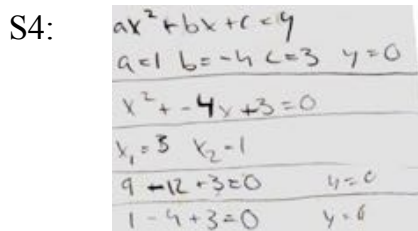 S4:
ax² + bx + c = y
a=1 b=-4 c=3 y=0
x² + -4x +3 = 0
x₁ = 3 x₂ = 1
9 -12 +3=0 y=0
1 - 4 +3=0 y=0